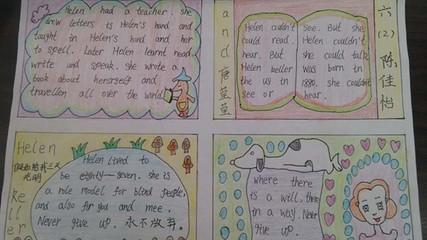 Helen had a teacher. she
drew letters is Helen's hand and
taught in Helen's hand and her
to spell. Later Helen learnt read
write and speak. she wrote a
book about herserself and
travellen all over the world
and
唐莹莹
Helen couldn't see. But she
could read. Helen couldn't
hear. But she could talk
Helen keller was born in
the us in 1880. she couldn't
see or hear.
六(2)陈佳怡
Helen
假如给我三天
光明
Keller
Helen lived to
be eighty-seven. she is
a role model for blind people,
and also for you and mee.
Never give up. 永不放弃.
where there
is a will, there
in a way. Never
give up.